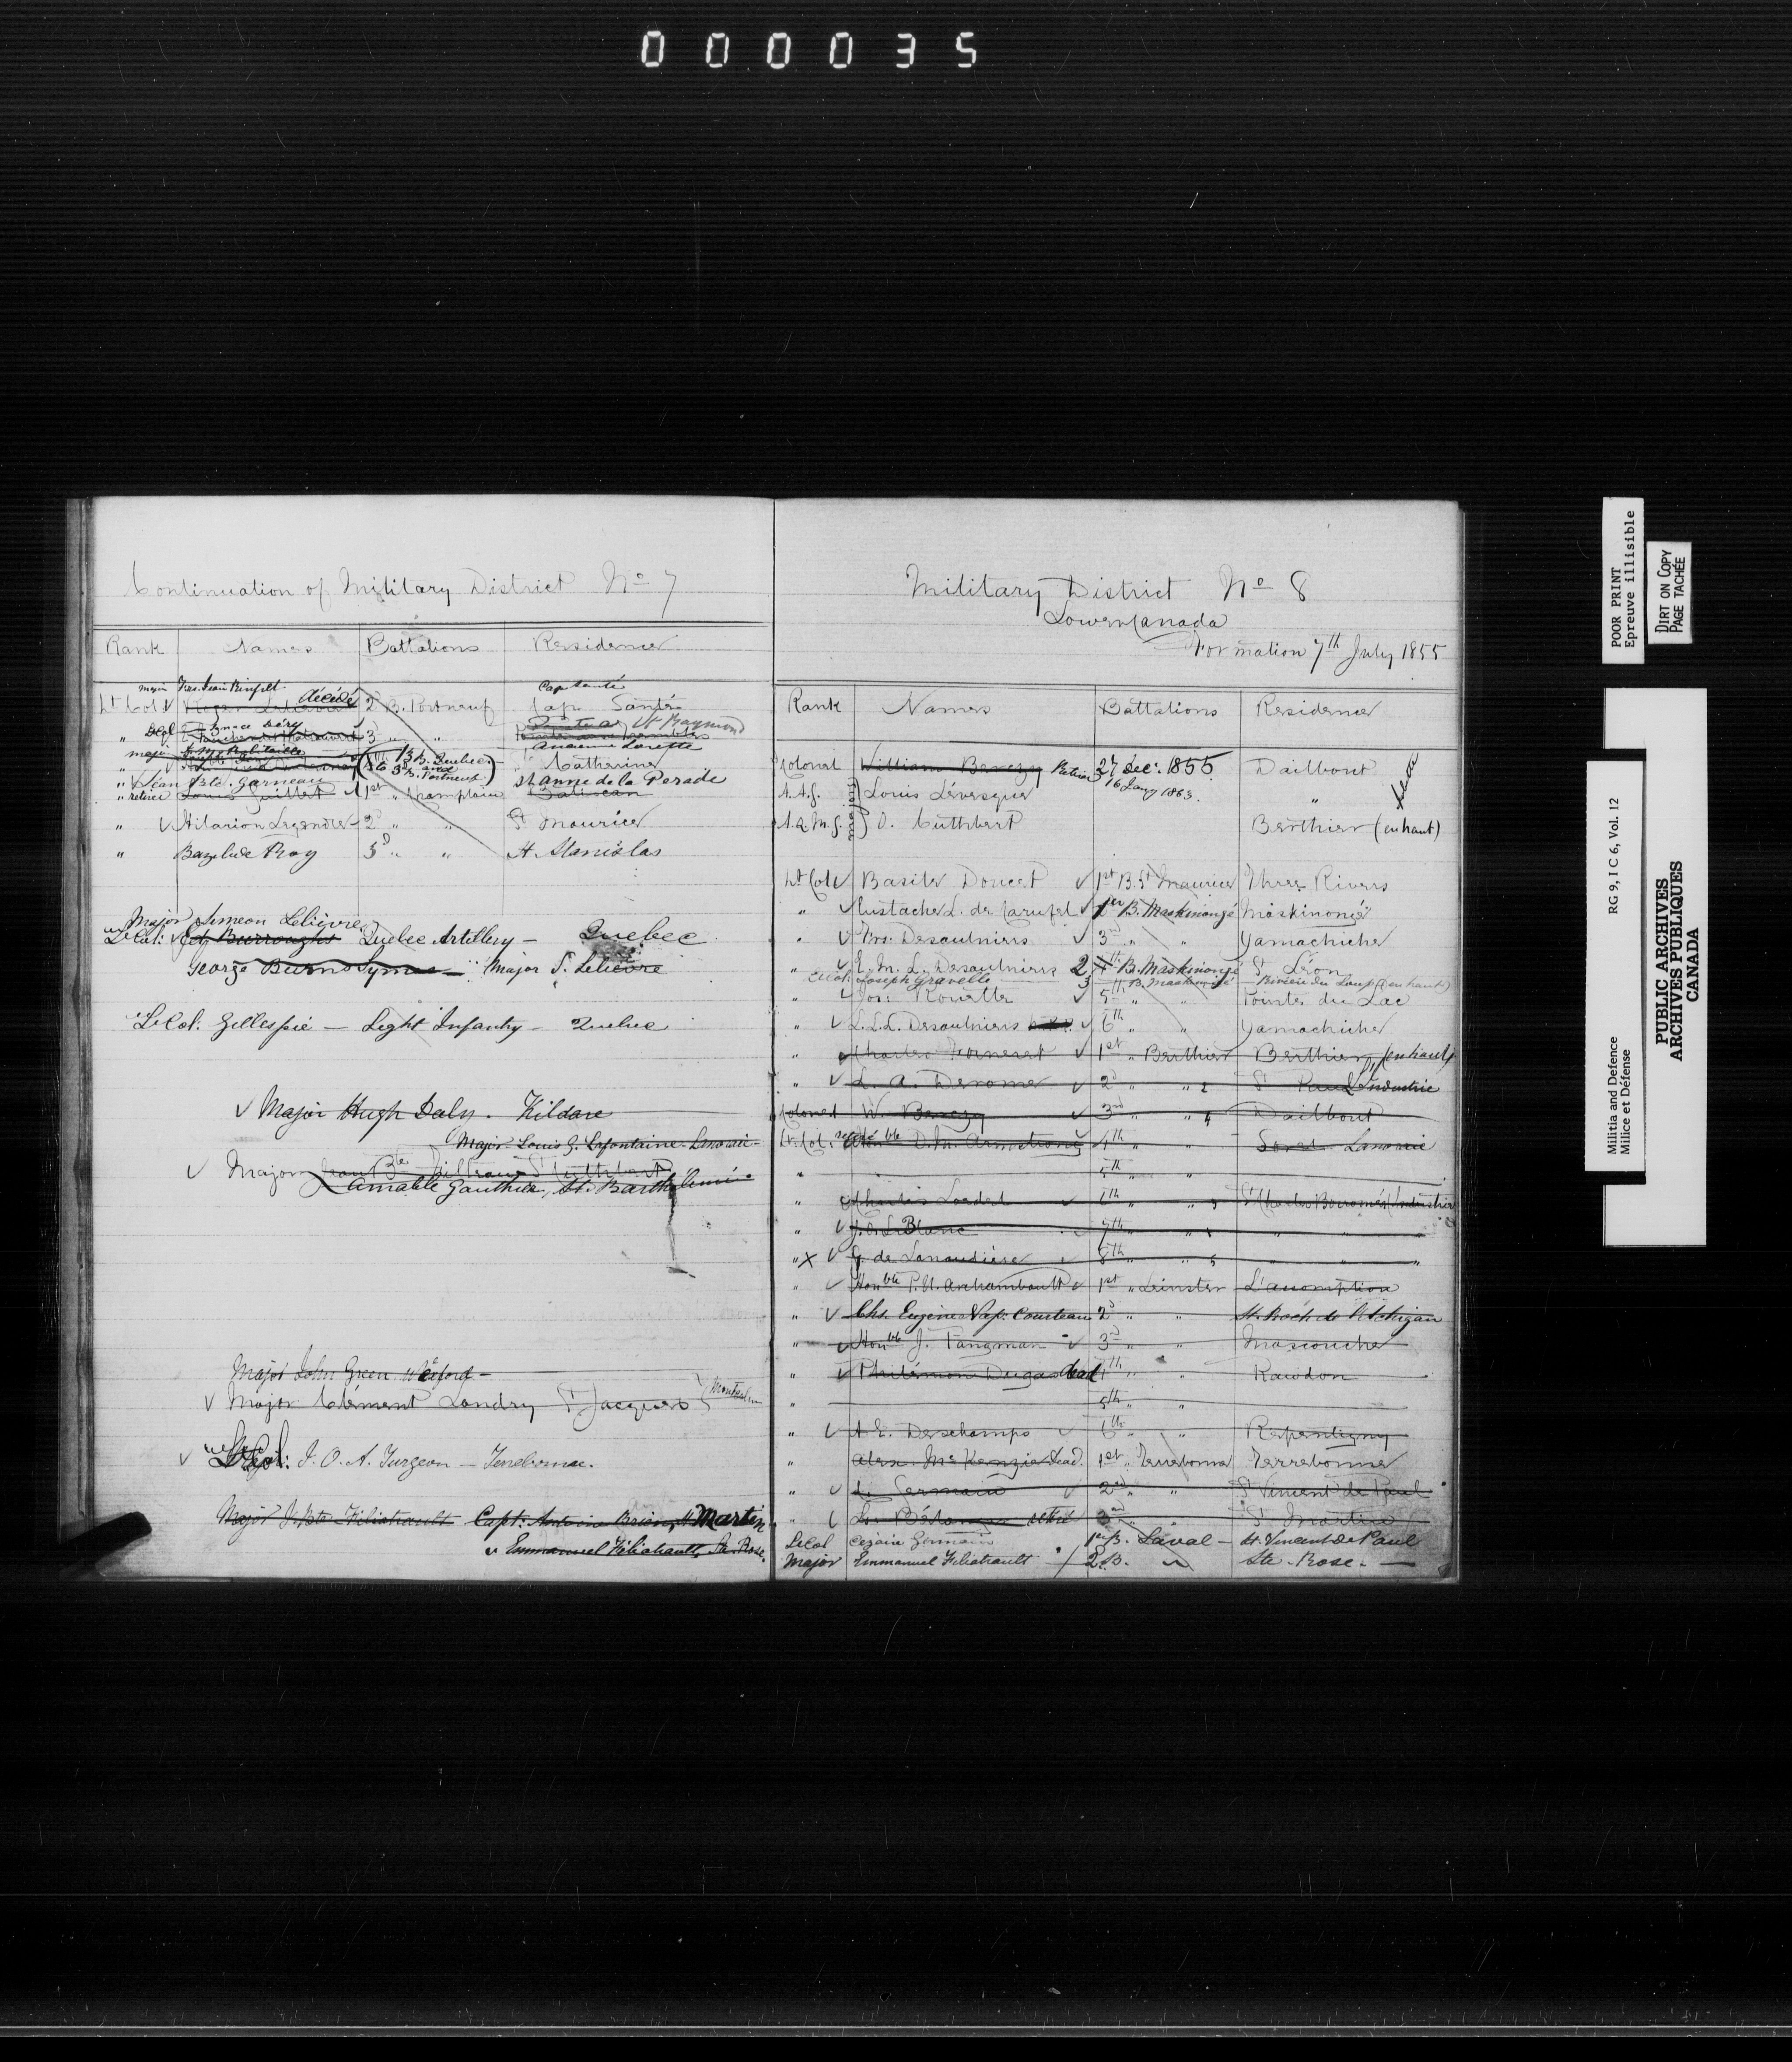 000035
Continuation of Military District No 7
Rank Names Battalions Residence
Major Frs. Jean Rinfret Cap Santé
Lt Col décédé 2 B. Portneuf Cap Santé
Lt Col Ignace Déry St Raymond
" 3d " "
Major Robitaille Ancienne Lorette
3 B. Quebec and 3d B. Portneuf Catherine
" Jean Bte. Garneau St Anne de la Perade
" retired Louis Guillet 1st " Champlain Batiscan
" Hilarion Legendre 2d " " St Maurice
" Bazelide Roy 3d " " St. Stanislas
Major Simeon Lelièvre
Lt Col: Edw Burroughs Quebec Artillery — Quebec
George Burns Symes — Major S. Lelièvre
Lt Col. Gillespie — Light Infantry — Quebec
Major Hugh Daly. Kildare
Major Louis G. Lafontaine - Lanoraie -
Major Jean Bte Cuthbert
Amable Gauthier, St. Barthélemi
Major John Green Wexford —
Major Clément Landry St Jacques Montcalm
Lt Col: J. O. A. Turgeon — Terrebonne.
Major J. Bte Filiatrault Capt. Antoine Brien, St Martin
Emmanuel Filiatrault, Ste Rose.
Military District No 8
Lower Canada
Formation 7th July 1855
Rank Names Battalions Residence
Colonel William Berczy Retired 27 Dec. 1855 Daillbout
16 Jany 1863.
A.A.G. Major Louis Lévesque "
A.Q.M.G. Major O. Cuthbert Berthier (en haut)
Lt Col Basile Doucet 1st B. St Maurice Three Rivers
" Eustache L. de Carufel 1er B. Maskinongé Maskinongé
" Frs: Desaulniers 3d " " Yamachiche
" L. M. L. Desaulniers 2 B. Maskinongé St Léon
Lt Col. Joseph Gravelle 3 B. Maskinongé Rivière du Loup (en haut)
" Jos: Rouette 5th " " Pointe du Lac
" L.L.L. Desaulniers 6th " " Yamachiche
" Charles Forneret 1st " Berthier Berthier (en haut)
" L. A. Derome 2d " " St Paul L'Industrie
Colonel W. Berczy 3rd " " Daillbout
Lt. Col. Honble D. M. Armstrong 4th " Sorel Lanoraie
" 5th " "
" Charles Loedel 6th " " St Charles Borromée (Industrie)
" J. O. LeBlanc 7th " " " "
" X G. de Lanaudière 8th " " " "
" Honble P. U. Archambault 1st " Leinster L'assomption
" Chs. Eugène Nap. Courteau 2d " " St. Roch de l'Achigan
" Honble J. Pangman 3rd " " Mascouche
" Philémon Dugas dead 4th " " Rawdon
" 5th " "
" A. E. Deschamps 6th " " Repentigny
" Alex. McKenzie dead. 1st " Terrebonne Terrebonne
" C. Germain 2nd " " St Vincent de Paul
" retiré 3rd " " St Martin
Lt Col Cézaire Germain 1er B. Laval — St. Vincent de Paul
Major Emmanuel Filiatrault 2 B. " Ste. Rose. —
POOR PRINT
Epreuve illisible
DIRT ON COPY
PAGE TACHÉE
Militia and Defence
Milice et Défense
RG 9, I C 6, Vol. 12
PUBLIC ARCHIVES
ARCHIVES PUBLIQUES
CANADA